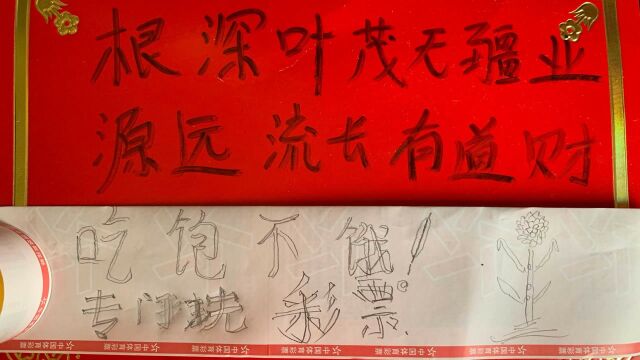 根深叶茂无疆业
源远流长有道财
吃饱不饿!
专门玩彩票
中国体育彩票 中国体育彩票 中国体育彩票 中国体育彩票 中国体育彩票 中国体育彩票